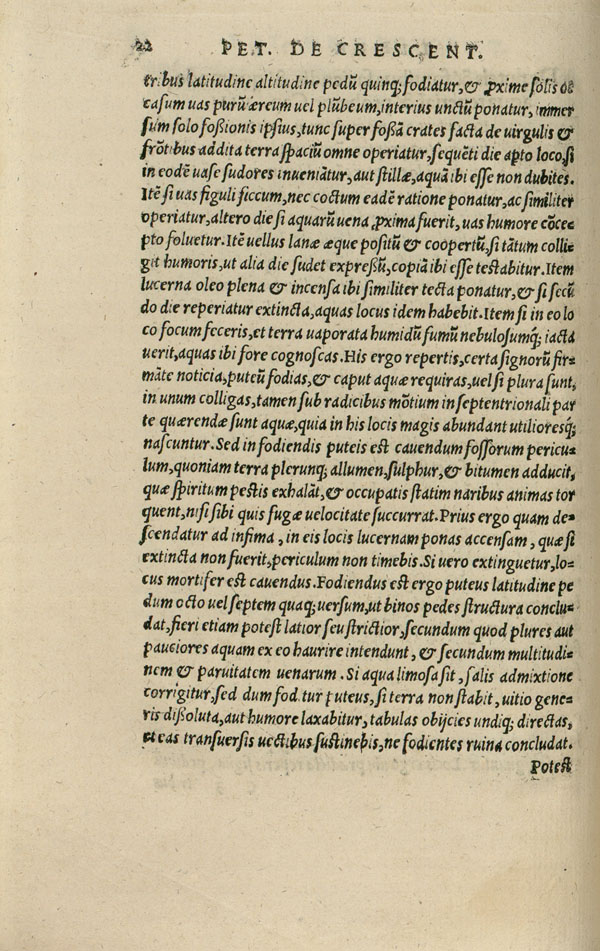 22 PET. DE CRESCENT.
tribus latitudine altitudine pedũ quinq; fodiatur, & ꝓxime sõlis oc
casum uas purũ æreum uel plũbeum, interius unctũ ponatur, immer
sum solo foßionis ipsius, tunc super foßã crates facta de uirgulis &
frõtibus addita terra spaciũ omne operiatur, sequẽti die apto loco, si
in eodẽ uase sudores inueniãtur, aut stillæ, aquã ibi esse non dubites.
Itẽ si uas figuli siccum, nec coctum eadẽ ratione ponatur, ac similiter
operiatur, altero die si aquarũ uena ꝓxima fuerit, uas humore cõce-
pto soluetur. Itẽ uellus lanæ æque positũ & coopertũ, si tãtum colli-
git humoris, ut alia die sudet expreßũ, copiã ibi esse testabitur. Item
lucerna oleo plena & incensa ibi similiter tecta ponatur, & si secũ
do die reperiatur extincta, aquas locus idem habebit. Item si in eo lo
co focum feceris, et terra uaporata humidũ fumũ nebulosumq́; iacta
uerit, aquas ibi fore cognoscas. His ergo repertis, certa signorũ fir-
mãte noticia, puteũ fodias, & caput aquæ requiras, uel si plura sunt,
in unum colligas, tamen sub radicibus mõtium in septentrionali par
te quærendæ sunt aquæ, quia in his locis magis abundant utilioresq́;
nascuntur. Sed in fodiendis puteis est cauendum fossorum pericu-
lum, quoniam terra plerunq; allumen, sulphur, & bitumen adducit,
quæ spiritum pestis exhalãt, & occupatis statim naribus animas tor
quent, nisi sibi quis fugæ uelocitate succurrat. Prius ergo quam de-
scendatur ad infima, in eis locis lucernam ponas accensam, quæ si
extincta non fuerit, periculum non timebis. Si uero extinguetur, lo-
cus mortifer est cauendus. Fodiendus est ergo puteus latitudine pe
dum octo uel septem quaq; uersum, ut binos pedes structura conclu-
dat, fieri etiam potest latior seu strictior, secundum quod plures aut
pauciores aquam ex eo haurire intendunt, & secundum multitudi-
nem & paruitatem uenarum. Si aqua limosa sit, salis admixtione
corrigitur, sed dum fod tur puteus, si terra non stabit, uitio gene-
ris dißoluta, aut humore laxabitur, tabulas obijcies undiq; directas,
et eas transuersis uectibus sustinebis, ne fodientes ruina concludat.
Potest